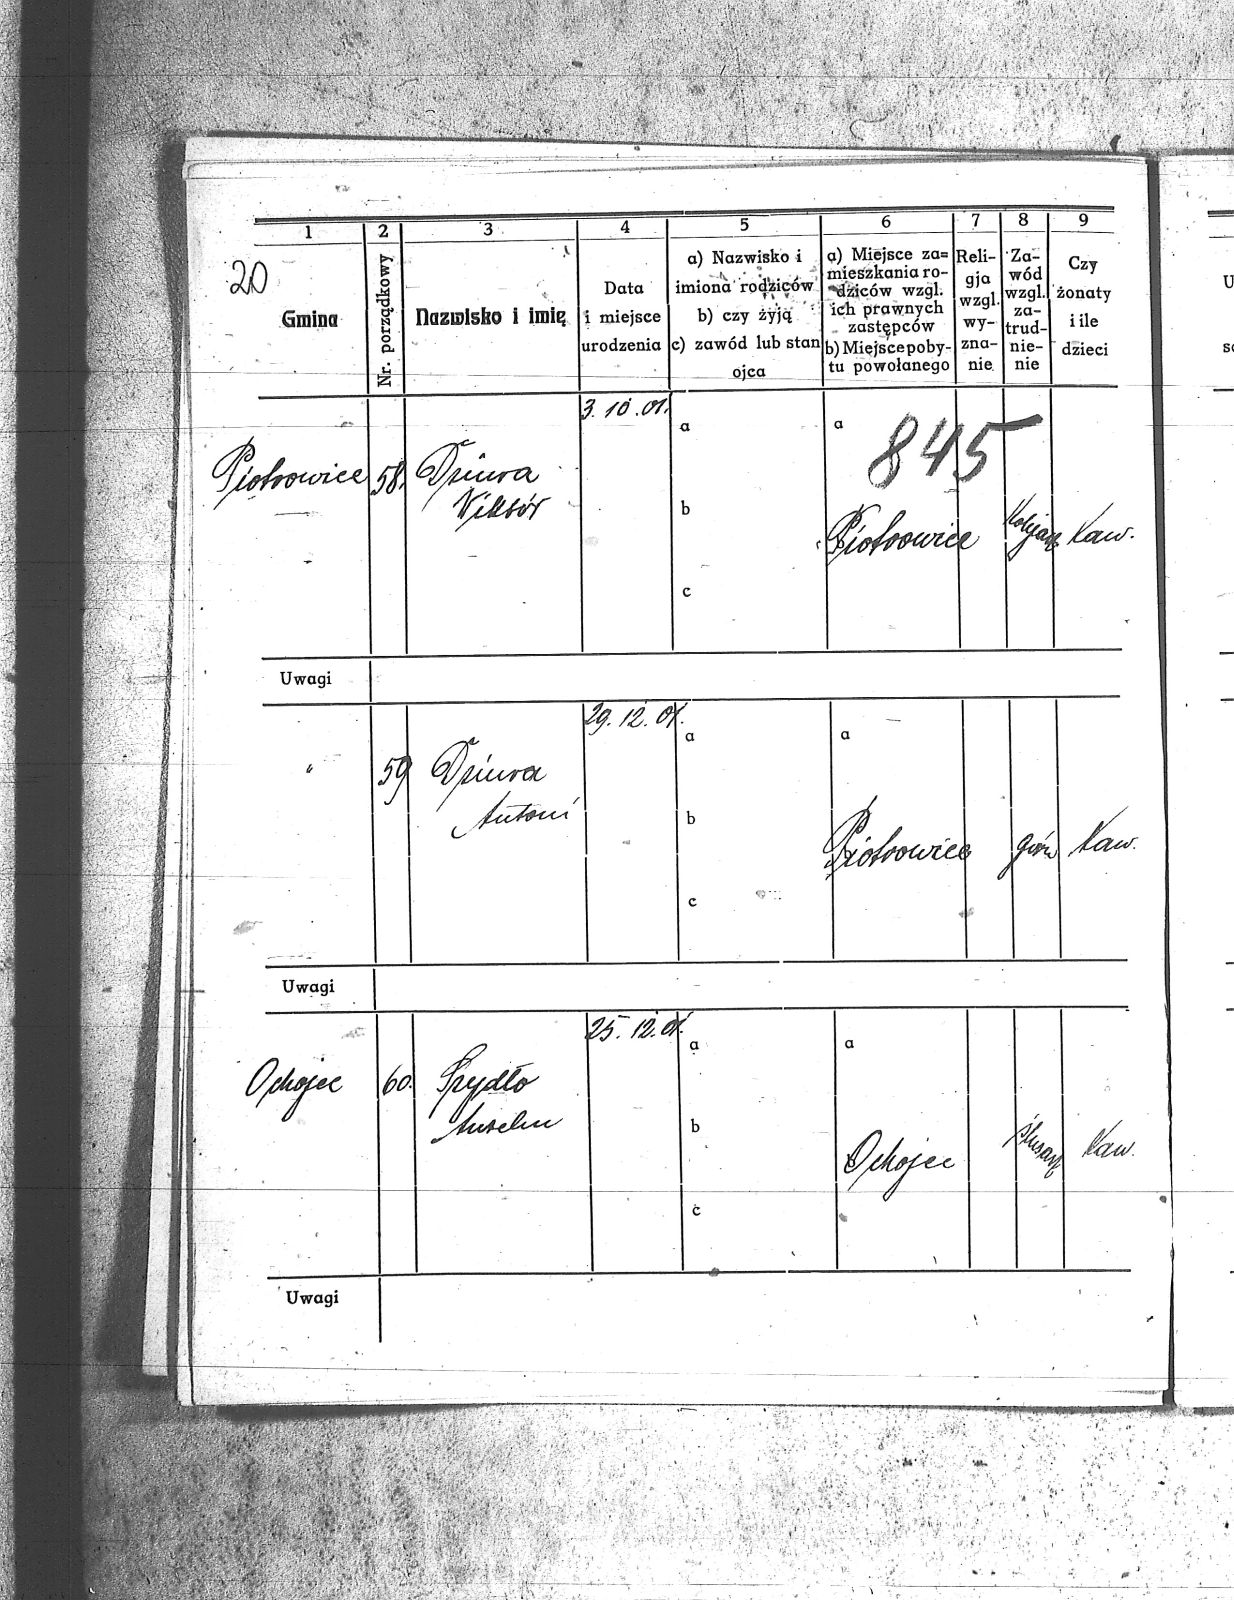 1 2 3 4 5 6 7 8 9
20
Gmina
Nr. porządkowy
Nazwisko i imię
Data
i miejsce
urodzenia
a) Nazwisko i
imiona rodziców
b) czy żyją
c) zawód lub stan
ojca
a) Miejsce za=
mieszkania ro-
dziców wzgl.
ich prawnych
zastępców
b) Miejsce poby-
tu powołanego
Reli-
gja
wzgl.
wy-
zna-
nie
Za-
wód
wzgl.
za-
trud-
nie-
nie
Czy
żonaty
i ile
dzieci
3. 10. 01.
a a
845
Piotrowice 58. Dziura
Wiktór
b
Piotrowice Kaw.
c
Uwagi
29. 12. 01.
a a
" 59 Dziura
Antoni
b
Piotrowice górn Kaw.
c
Uwagi
25. 12. 01.
a a
Ochojec 60. Szydło
Anselm
b
Ochojec ślusarz Kaw.
c
Uwagi
U